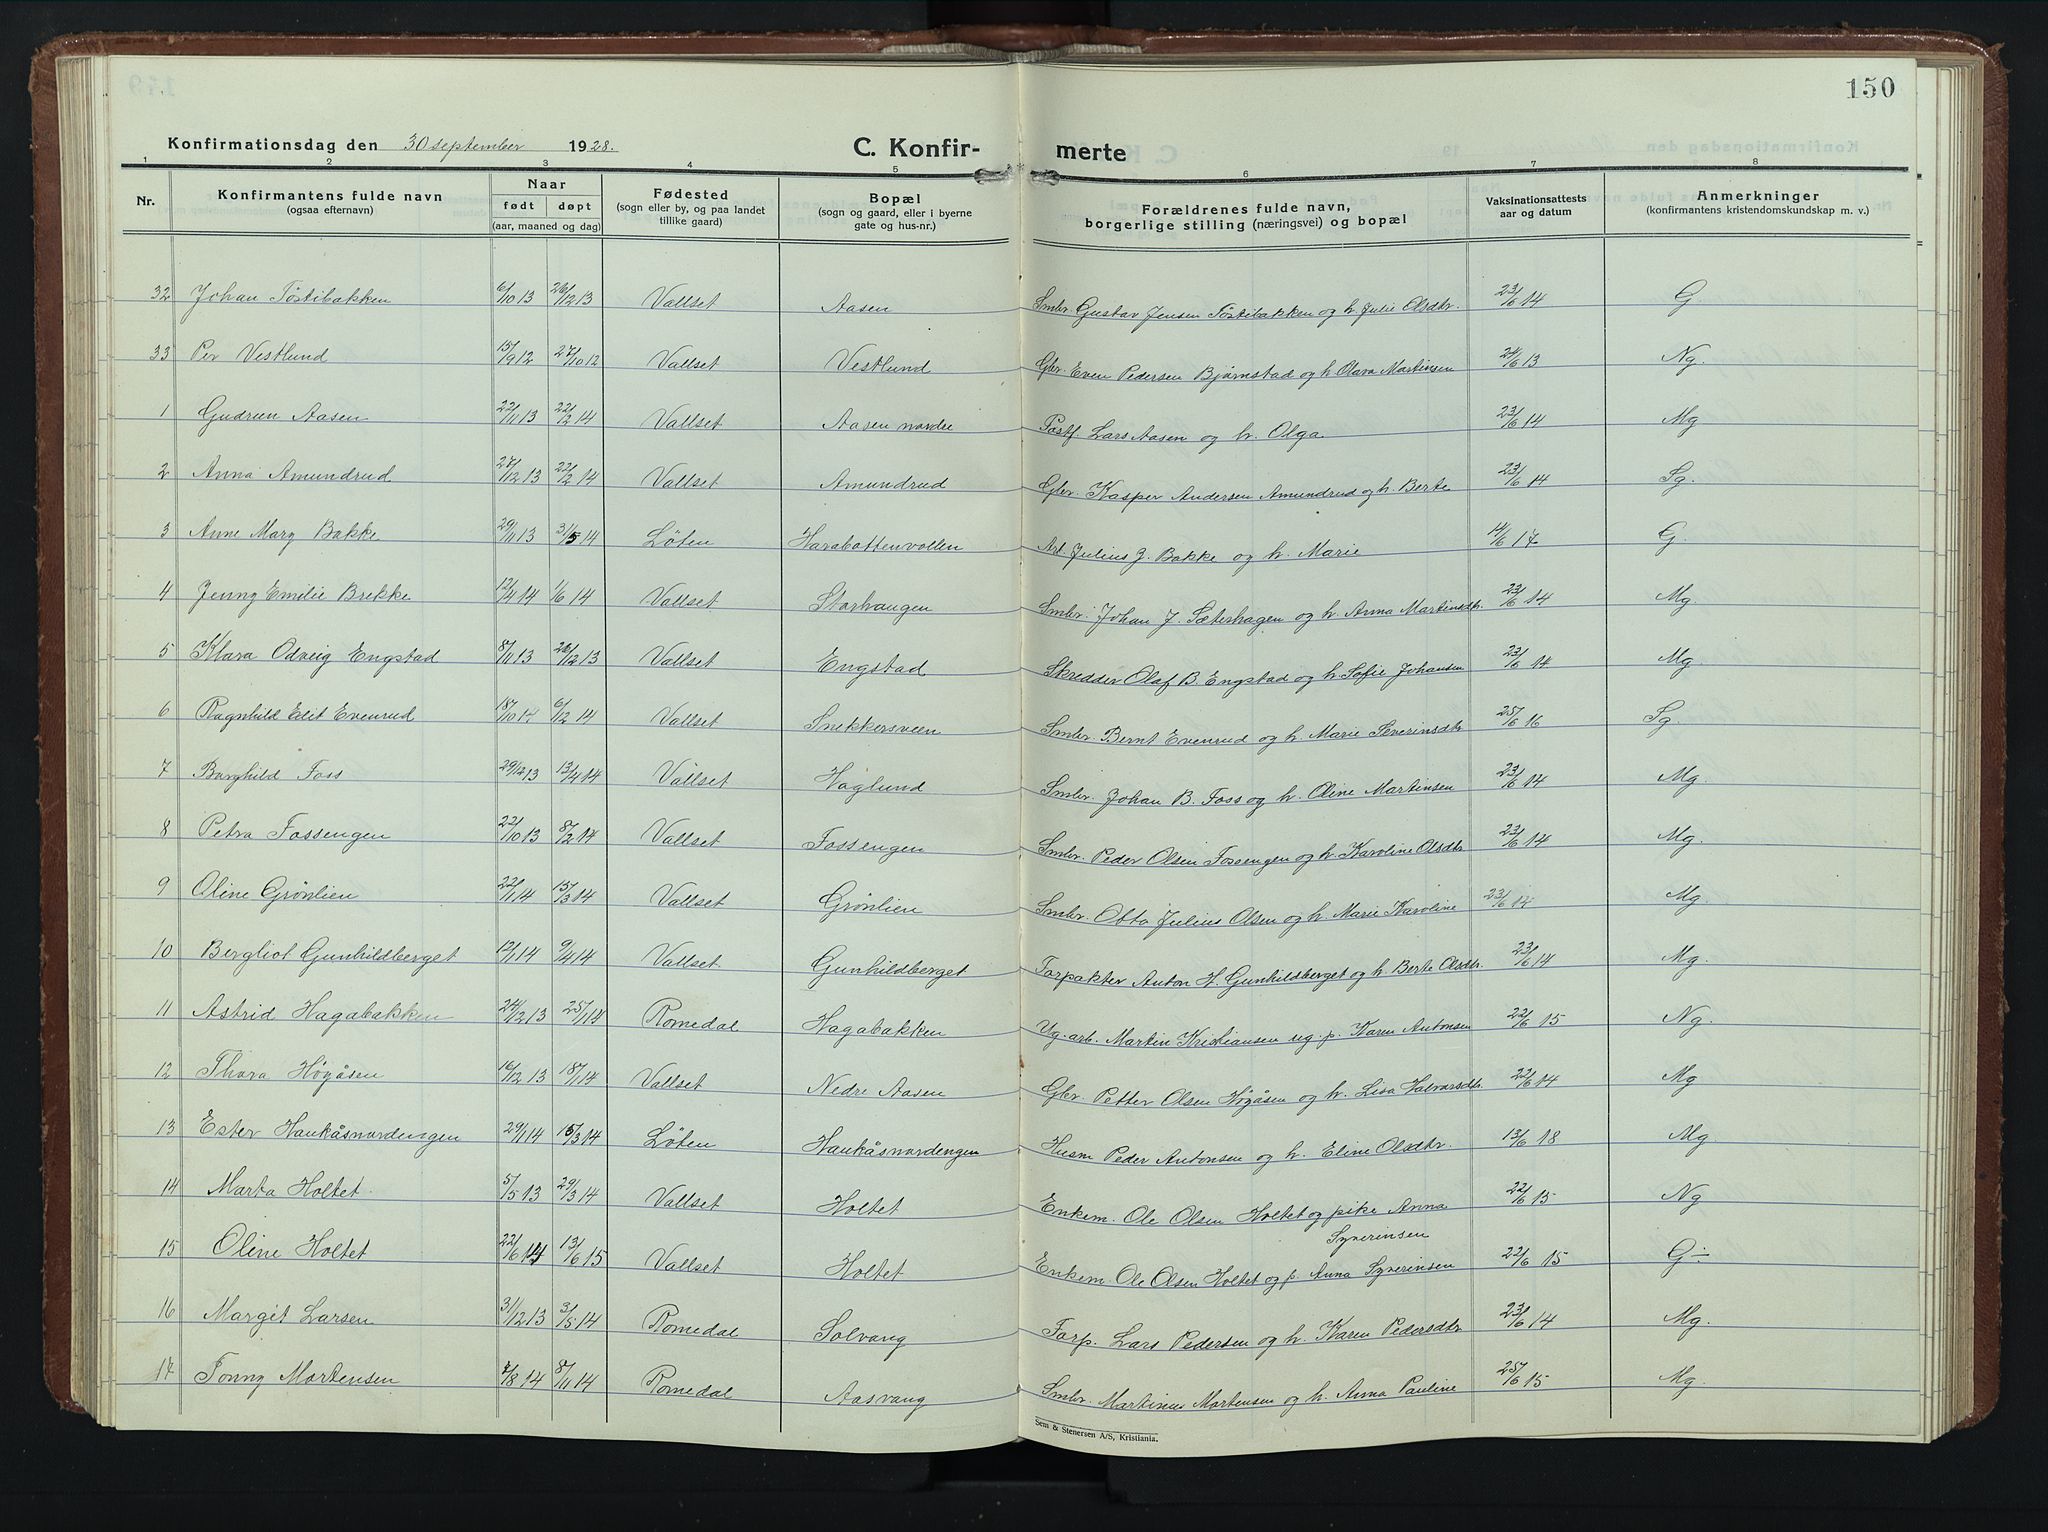 150
Konfirmationsdag den 30 september 1928.
C. Konfir-
merte
1 2 3 4 5 6 7 8
Nr.
Konfirmantens fulde navn
(ogsaa efternavn)
Naar
født døpt
(aar, maaned og dag)
Fødested
(sogn eller by, og paa landet
tillike gaard)
Bopæl
(sogn og gaard, eller i byerne
gate og hus-nr.)
Forældrenes fulde navn,
borgerlige stilling (næringsvei) og bopæl
Vaksinationsattests
aar og datum
Anmerkninger
(konfirmantens kristendomskundskap m. v.)
32 Johan Töstibakken 6/10 13 26/12 13 Vallset Aasen Smbr. Gustav Jensen Töstibakken og h. Julie Olsdtr. 23/6 14 G.
33 Per Vestlund 15/9 12 27/10 12 Vallset Vestlund Gbr. Even Pedersen Bjørnstad og h. Olava Martinsen 24/6 13 Ng.
1 Gudrun Aasen 22/11 13 22/2 14 Vallset Aasen nordre Postf. Lars Aasen og h. Olga 23/6 14 Mg
2 Anna Amundrud 27/12 13 22/2 14 Vallset Amundrud Gbr. Kasper Andersen Amundrud og h. Berte 23/6 14 Sg.
3 Anne Mary Bakke 29/11 13 31/5 14 Løten Harabattenvollen Arb. Julius J. Bakke og h. Marie 14/6 17 G.
4 Jenny Emilie Brekke 12/4 14 1/6 14 Vallset Storhaugen Smbr. Johan J. Sæterhagen og h. Anna Martinsdtr. 23/6 14 Mg.
5 Klara Odveig Engstad 8/11 13 26/12 13 Vallset Engstad Skredder Olaf B. Engstad og h. Sofie Johansen 23/6 14 Mg.
6 Ragnhild Edit Evenrud 18/10 14 6/12 14 Vallset Snekkersveen Smbr. Bernt Evenrud og h. Marie Severinsdtr 25/6 16 Sg.
7 Borghild Foss 29/12 13 13/4 14 Vallset Haglund Smbr. Johan B. Foss og h. Oline Martinsen 23/6 14 Mg.
8 Petra Fossengen 22/10 13 8/2 14 Vallset Fossengen Smbr. Peder Olsen Fossengen og h. Karoline Olsdtr 23/6 14 Mg.
9 Oline Grönlien 22/1 14 15/3 14 Vallset Grönlien Smbr. Otto Julius Olsen og h. Marie Karoline 23/6 14 Mg.
10 Bergliot Gunhildberget 12/1 14 9/4 14 Vallset. Gunhildberget Forpakter Anton H. Gunhildberget og h. Berte Olsdtr. 23/6 14 Mg.
11 Astrid Hagabakken 24/12 13 25/1 14 Romedal Hagabakken Ug. arb. Martin Kristiansen ug. p. Karen Antonsen 22/6 15 Ng.
12 Thora Högåsen 16/12 13 18/1 14 Vallset Nedre Aasen Gbr. Petter Olsen Högåsen og h. Lisa Halvorsdtr 22/6 14 Mg
13 Ester Haukåsnordengen 29/1 14 15/3 14 Løten Haukåsnordengen Husm Peder Antonsen og h. Eline Olsdtr. 13/6 18 Mg
14 Marta Holtet 5/5 13 29/3 14 Vallset Holtet Enkem. Ole Olsen Holtet og pike Anna
Syverinsen 22/6 15 Ng
15 Oline Holtet 22/6 14 13/6 15 Vallset Holtet Enkem. Ole Olsen Holtet og p. Anna Syverinsen 22/6 15 G÷
16 Margit Larsen 31/12 13 3/5 14 Romedal Solvang Forp. Lars Pedersen og h. Karen Pedersdtr 23/6 14 Mg.
17 Tonny Mortensen 7/8 14 8/11 14 Romedal Aasvang Smbr. Martinus Mortensen og h. Anna Pauline 25/6 15 Mg.
Sem & Stenersen A/S, Kristiania.